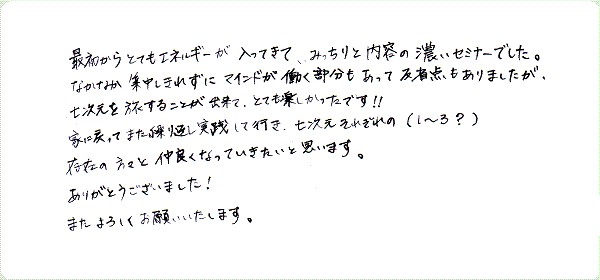 最初からとてもエネルギーが入ってきて、みっちりと内容の濃いセミナーでした。
なかなか集中しきれずにマインドが働く部分もあって反省点もありましたが、
七次元を旅することが出来て、とても楽しかったです!!
家に戻ってまた繰り返し実践して行き、七次元それぞれの(1~3?)
存在の方々と仲良くなっていきたいと思います。
ありがとうございました!
またよろしくお願いいたします。